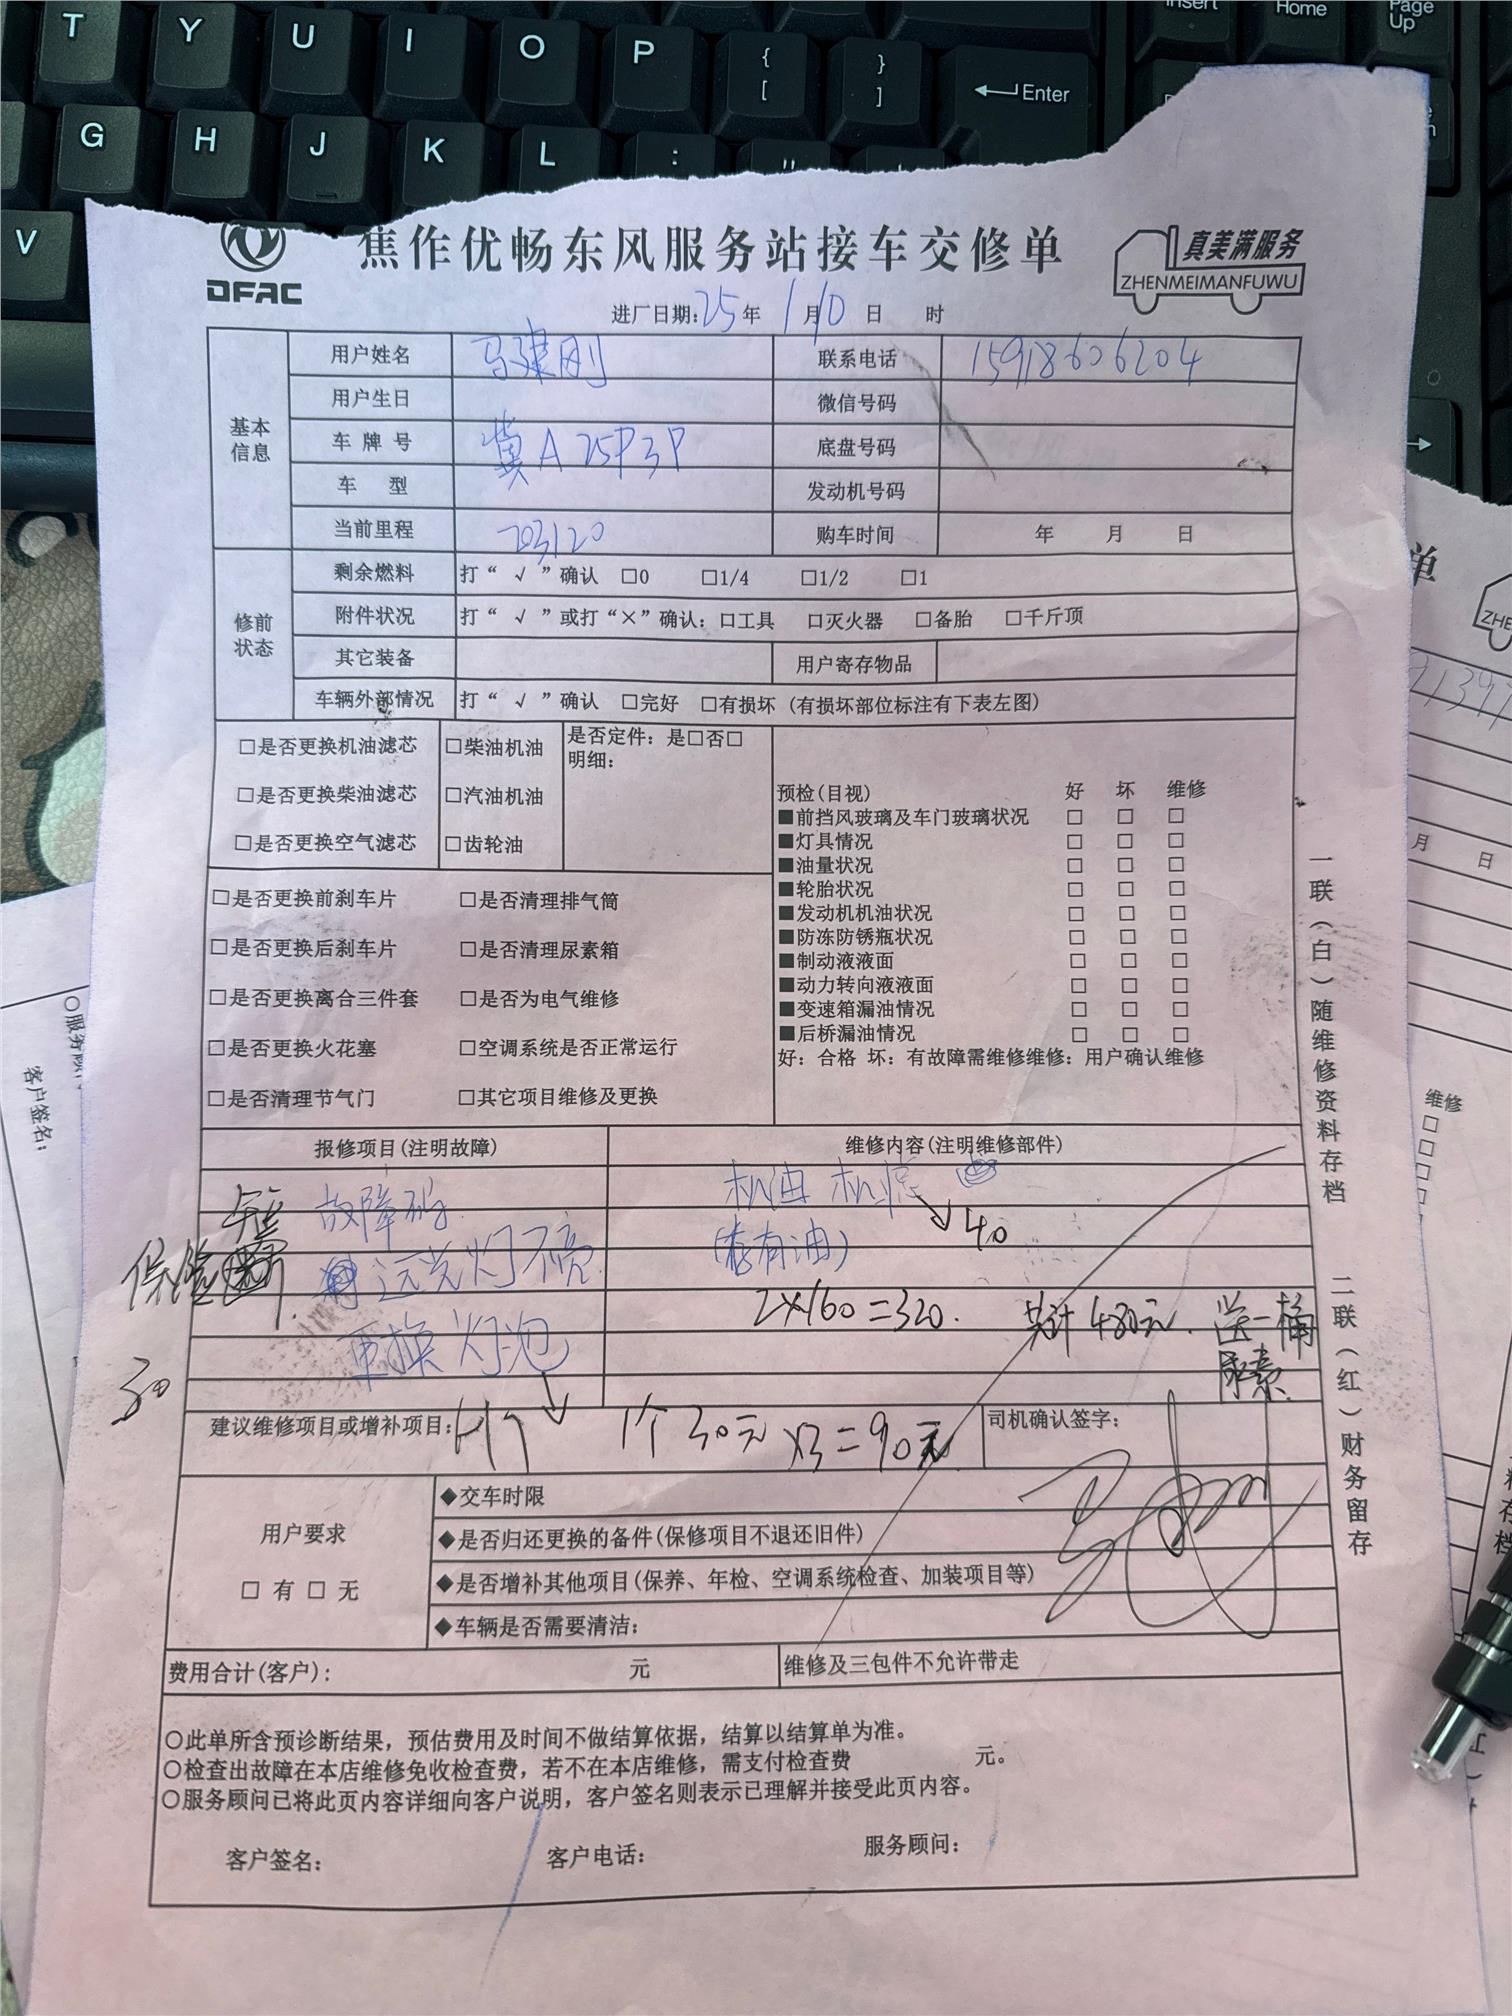 T Y U I O P { [ } ] Enter Insert Home Page Up
G H J K L :
V
DFAC
焦作优畅东风服务站接车交修单
真美满服务
ZHENMEIMANFUWU
进厂日期:25年1月10日 时
基本信息
用户姓名 马建刚 联系电话 15918606204
用户生日 微信号码
车牌号 冀A25P3P 底盘号码
车型 发动机号码
当前里程 203120 购车时间 年 月 日
修前状态
剩余燃料 打“√”确认 □0 □1/4 □1/2 □1
附件状况 打“√”或打“×”确认：□工具 □灭火器 □备胎 □千斤顶
其它装备 用户寄存物品
车辆外部情况 打“√”确认 □完好 □有损坏（有损坏部位标注有下表左图）
□是否更换机油滤芯 □柴油机油 是否定件：是□否□
明细：
□是否更换柴油滤芯 □汽油机油
□是否更换空气滤芯 □齿轮油
□是否更换前刹车片 □是否清理排气筒
□是否更换后刹车片 □是否清理尿素箱
□是否更换离合三件套 □是否为电气维修
□是否更换火花塞 □空调系统是否正常运行
□是否清理节气门 □其它项目维修及更换
预检(目视) 好 坏 维修
■前挡风玻璃及车门玻璃状况 □ □ □
■灯具情况 □ □ □
■油量状况 □ □ □
■轮胎状况 □ □ □
■发动机机油状况 □ □ □
■防冻防锈瓶状况 □ □ □
■制动液液面 □ □ □
■动力转向液液面 □ □ □
■变速箱漏油情况 □ □ □
■后桥漏油情况 □ □ □
好：合格 坏：有故障需维修维修：用户确认维修
报修项目(注明故障) 维修内容(注明维修部件)
故障码 机油 机滤
40
保险 远光灯不亮 (有油)
2×160=320. 共计480元. 送一桶
尿素
更换灯泡
30
建议维修项目或增补项目：H7 1个30元 ×3=90元 司机确认签字：
用户要求
□有□无
◆交车时限
◆是否归还更换的备件(保修项目不退还旧件)
◆是否增补其他项目(保养、年检、空调系统检查、加装项目等)
◆车辆是否需要清洁：
费用合计(客户)： 元 维修及三包件不允许带走
○此单所含预诊断结果，预估费用及时间不做结算依据，结算以结算单为准。
○检查出故障在本店维修免收检查费，若不在本店维修，需支付检查费 元。
○服务顾问已将此页内容详细向客户说明，客户签名则表示已理解并接受此页内容。
客户签名： 客户电话： 服务顾问：
一联（白）随维修资料存档 二联（红）财务留存
客户签名：
单
月 日
维修